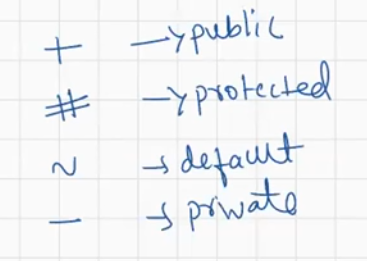 + → public
# → protected
~ → default
- → private